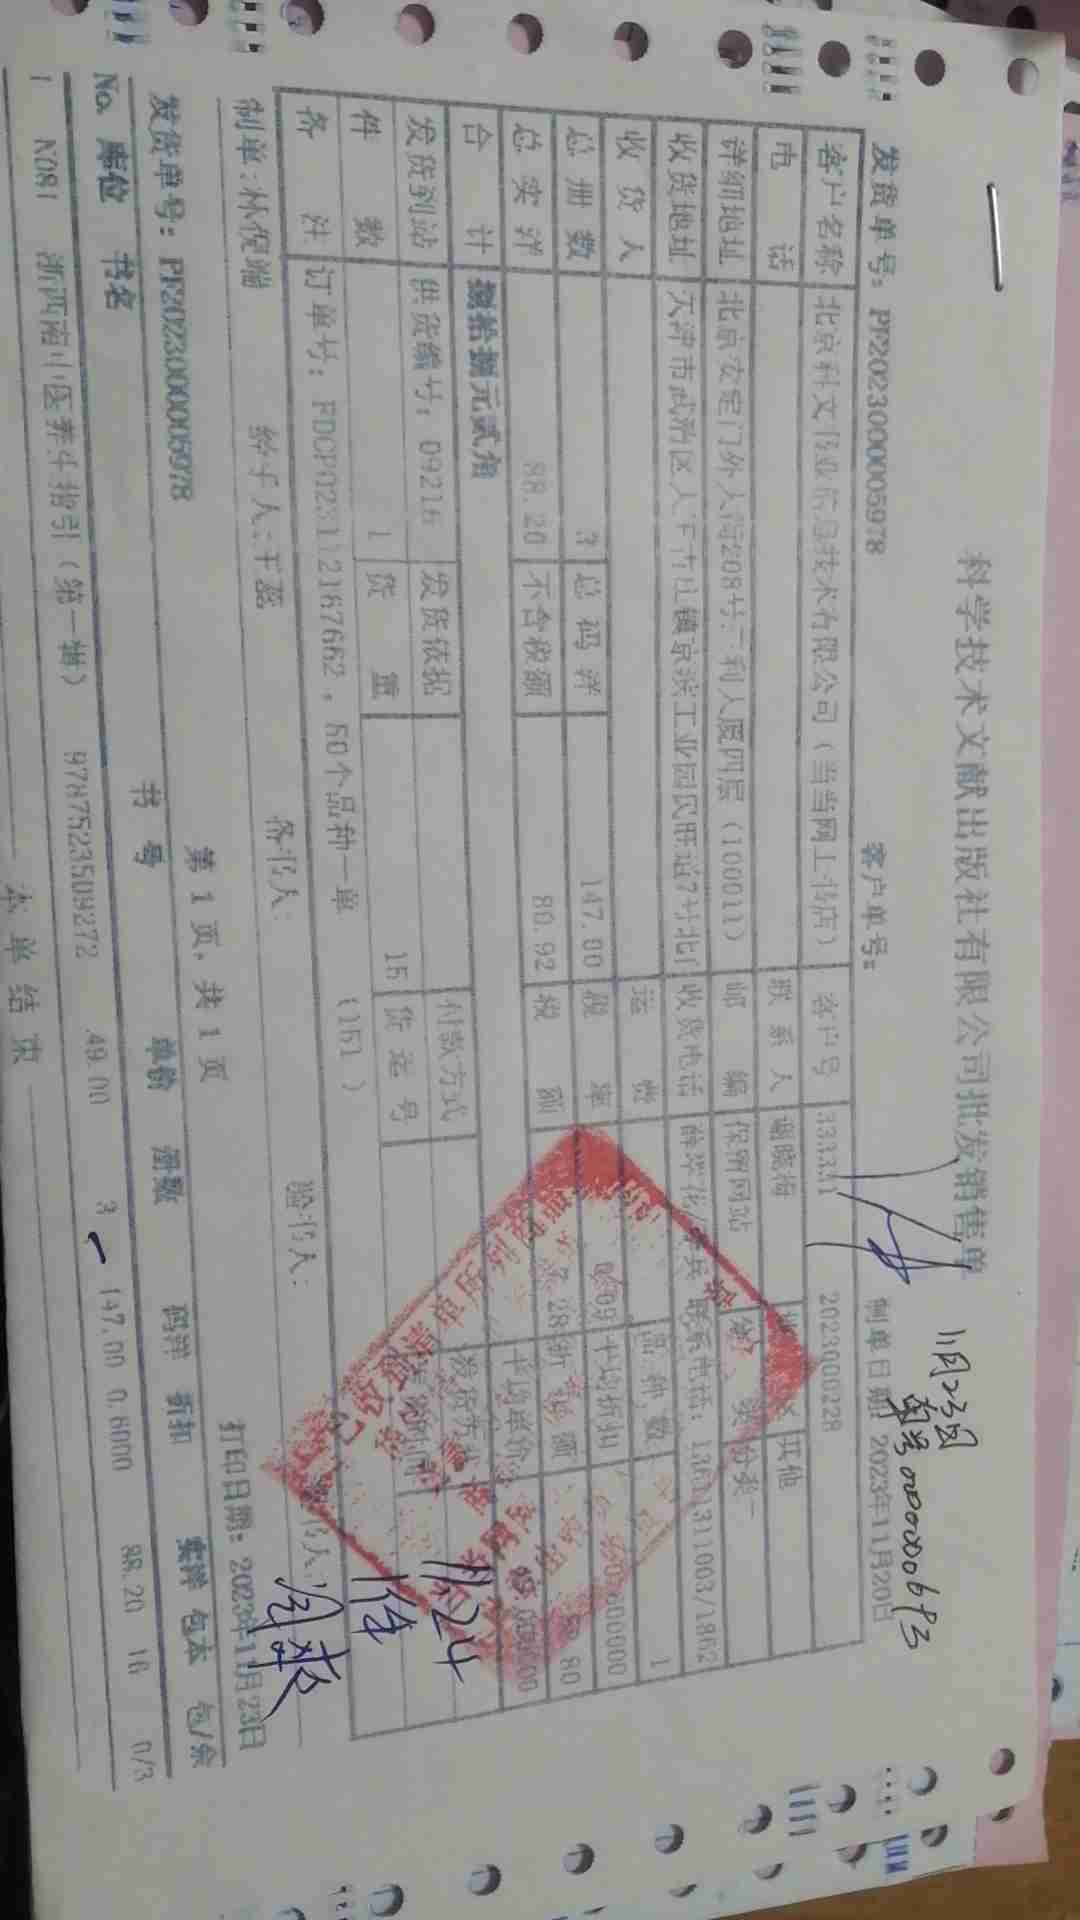 科学技术文献出版社有限公司批发销售单
11月23日
发货单号: PF202300005978 客户单号: 制单日期 2023年11月20日
客户名称 北京科文书业信息技术有限公司(当当网上书店) 客户号 333331 2023000228
电 话 联系人 谢晓梅 其他
详细地址 北京安定门外大街208号三利大厦四层(100011) 邮 编 保留网站 分类一
收货地址 天津市武清区大王古庄镇京滨工业园民旺道7号北门 收货电话 联系电话: 13601311003/1862
收货人 运 费 品种数 1
总册数 3 总码洋 147.00 税 率 0.09 平均折扣 0.600000
总实洋 88.20 不含税额 80.92 税 额 7.28 折扣额 58.80
合 计 捌拾捌元贰角 平均单价
发货到站 供货编号: 09216 发货依据 付款方式 发货方式
件 数 1 货 重 15 货运号
备 注 订单号: FDCP023112167662, 60个品种一单 (151)
11.24
1件
制单: 林倪端 经手人: 王蕊 备书人: 验书人:
打印日期: 2023年11月23日
第 1 页, 共 1 页
发货单号: PF202300005978
No. 库位 书名 书 号 单价 册数 码洋 折扣 实洋 包本 包/余
1 N081 浙西南中医养生指引(第一辑) 9787523509272 49.00 3 147.00 0.6000 88.20 16 0/3
本 单 结 束